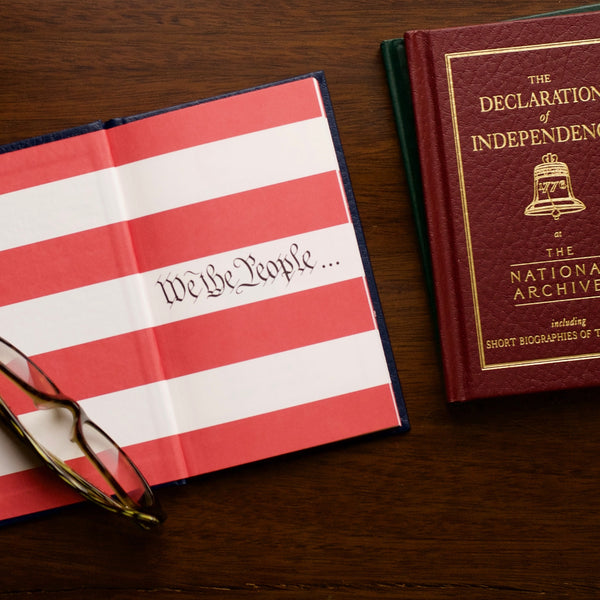 We the People ...
THE
DECLARATION
of
INDEPENDENC
at
THE
NATIONA
ARCHIVE
including
SHORT BIOGRAPHIES OF T